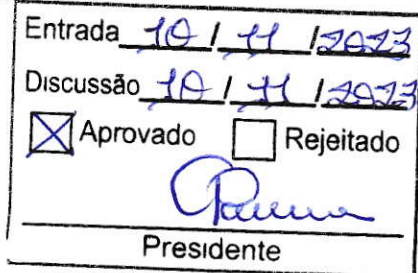 Entrada 10 / 11 / 2023
Discussão 10 / 11 / 2023
☒ Aprovado ☐ Rejeitado
Presidente